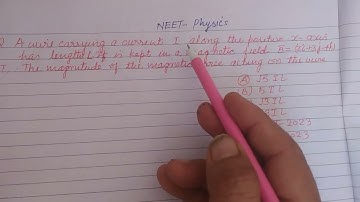 NEET - Physics
Q A wire carrying a current I along the positive x-axis
has length L. It is kept in a magnetic field B = (2i+3j-4k)
T. The magnitude of the magnetic force acting on the wire
(A) √5 IL
(B) 5 IL
√3 IL
IL
2023